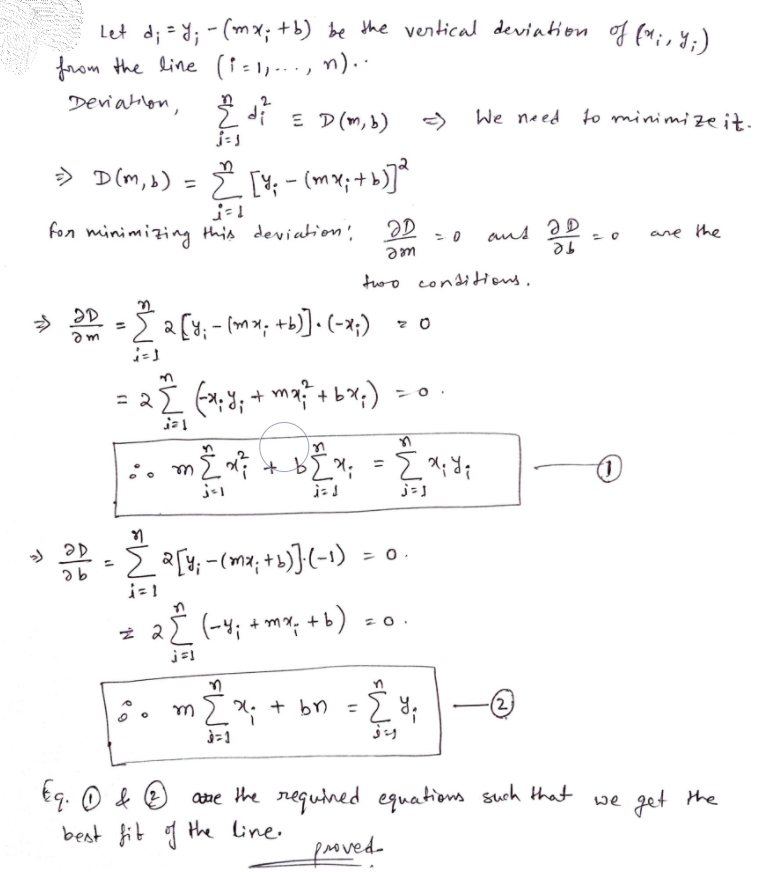 Let dᵢ = yᵢ - (mxᵢ + b) be the vertical deviation of (xᵢ, yᵢ)
from the line (i = 1, ..., n)..
Deviation, ∑ᵢ₌₁ⁿ dᵢ² ≡ D(m, b) ⇒ We need to minimize it.
⇒ D(m, b) = ∑ᵢ₌₁ⁿ [yᵢ - (mxᵢ + b)]²
for minimizing this deviation: ∂D/∂m = 0 and ∂D/∂b = 0 are the
two conditions.
⇒ ∂D/∂m = ∑ᵢ₌₁ⁿ 2[yᵢ - (mxᵢ + b)]·(-xᵢ) = 0
= 2∑ᵢ₌₁ⁿ (-xᵢyᵢ + mxᵢ² + bxᵢ) = 0.
∴ m∑ᵢ₌₁ⁿ xᵢ² + b∑ᵢ₌₁ⁿ xᵢ = ∑ᵢ₌₁ⁿ xᵢyᵢ — ①
⇒ ∂D/∂b = ∑ᵢ₌₁ⁿ 2[yᵢ - (mxᵢ + b)]·(-1) = 0.
= 2∑ᵢ₌₁ⁿ (-yᵢ + mxᵢ + b) = 0.
∴ m∑ᵢ₌₁ⁿ xᵢ + bn = ∑ᵢ₌₁ⁿ yᵢ — ②
Eq. ① & ② are the required equations such that we get the
best fit of the line.
proved.